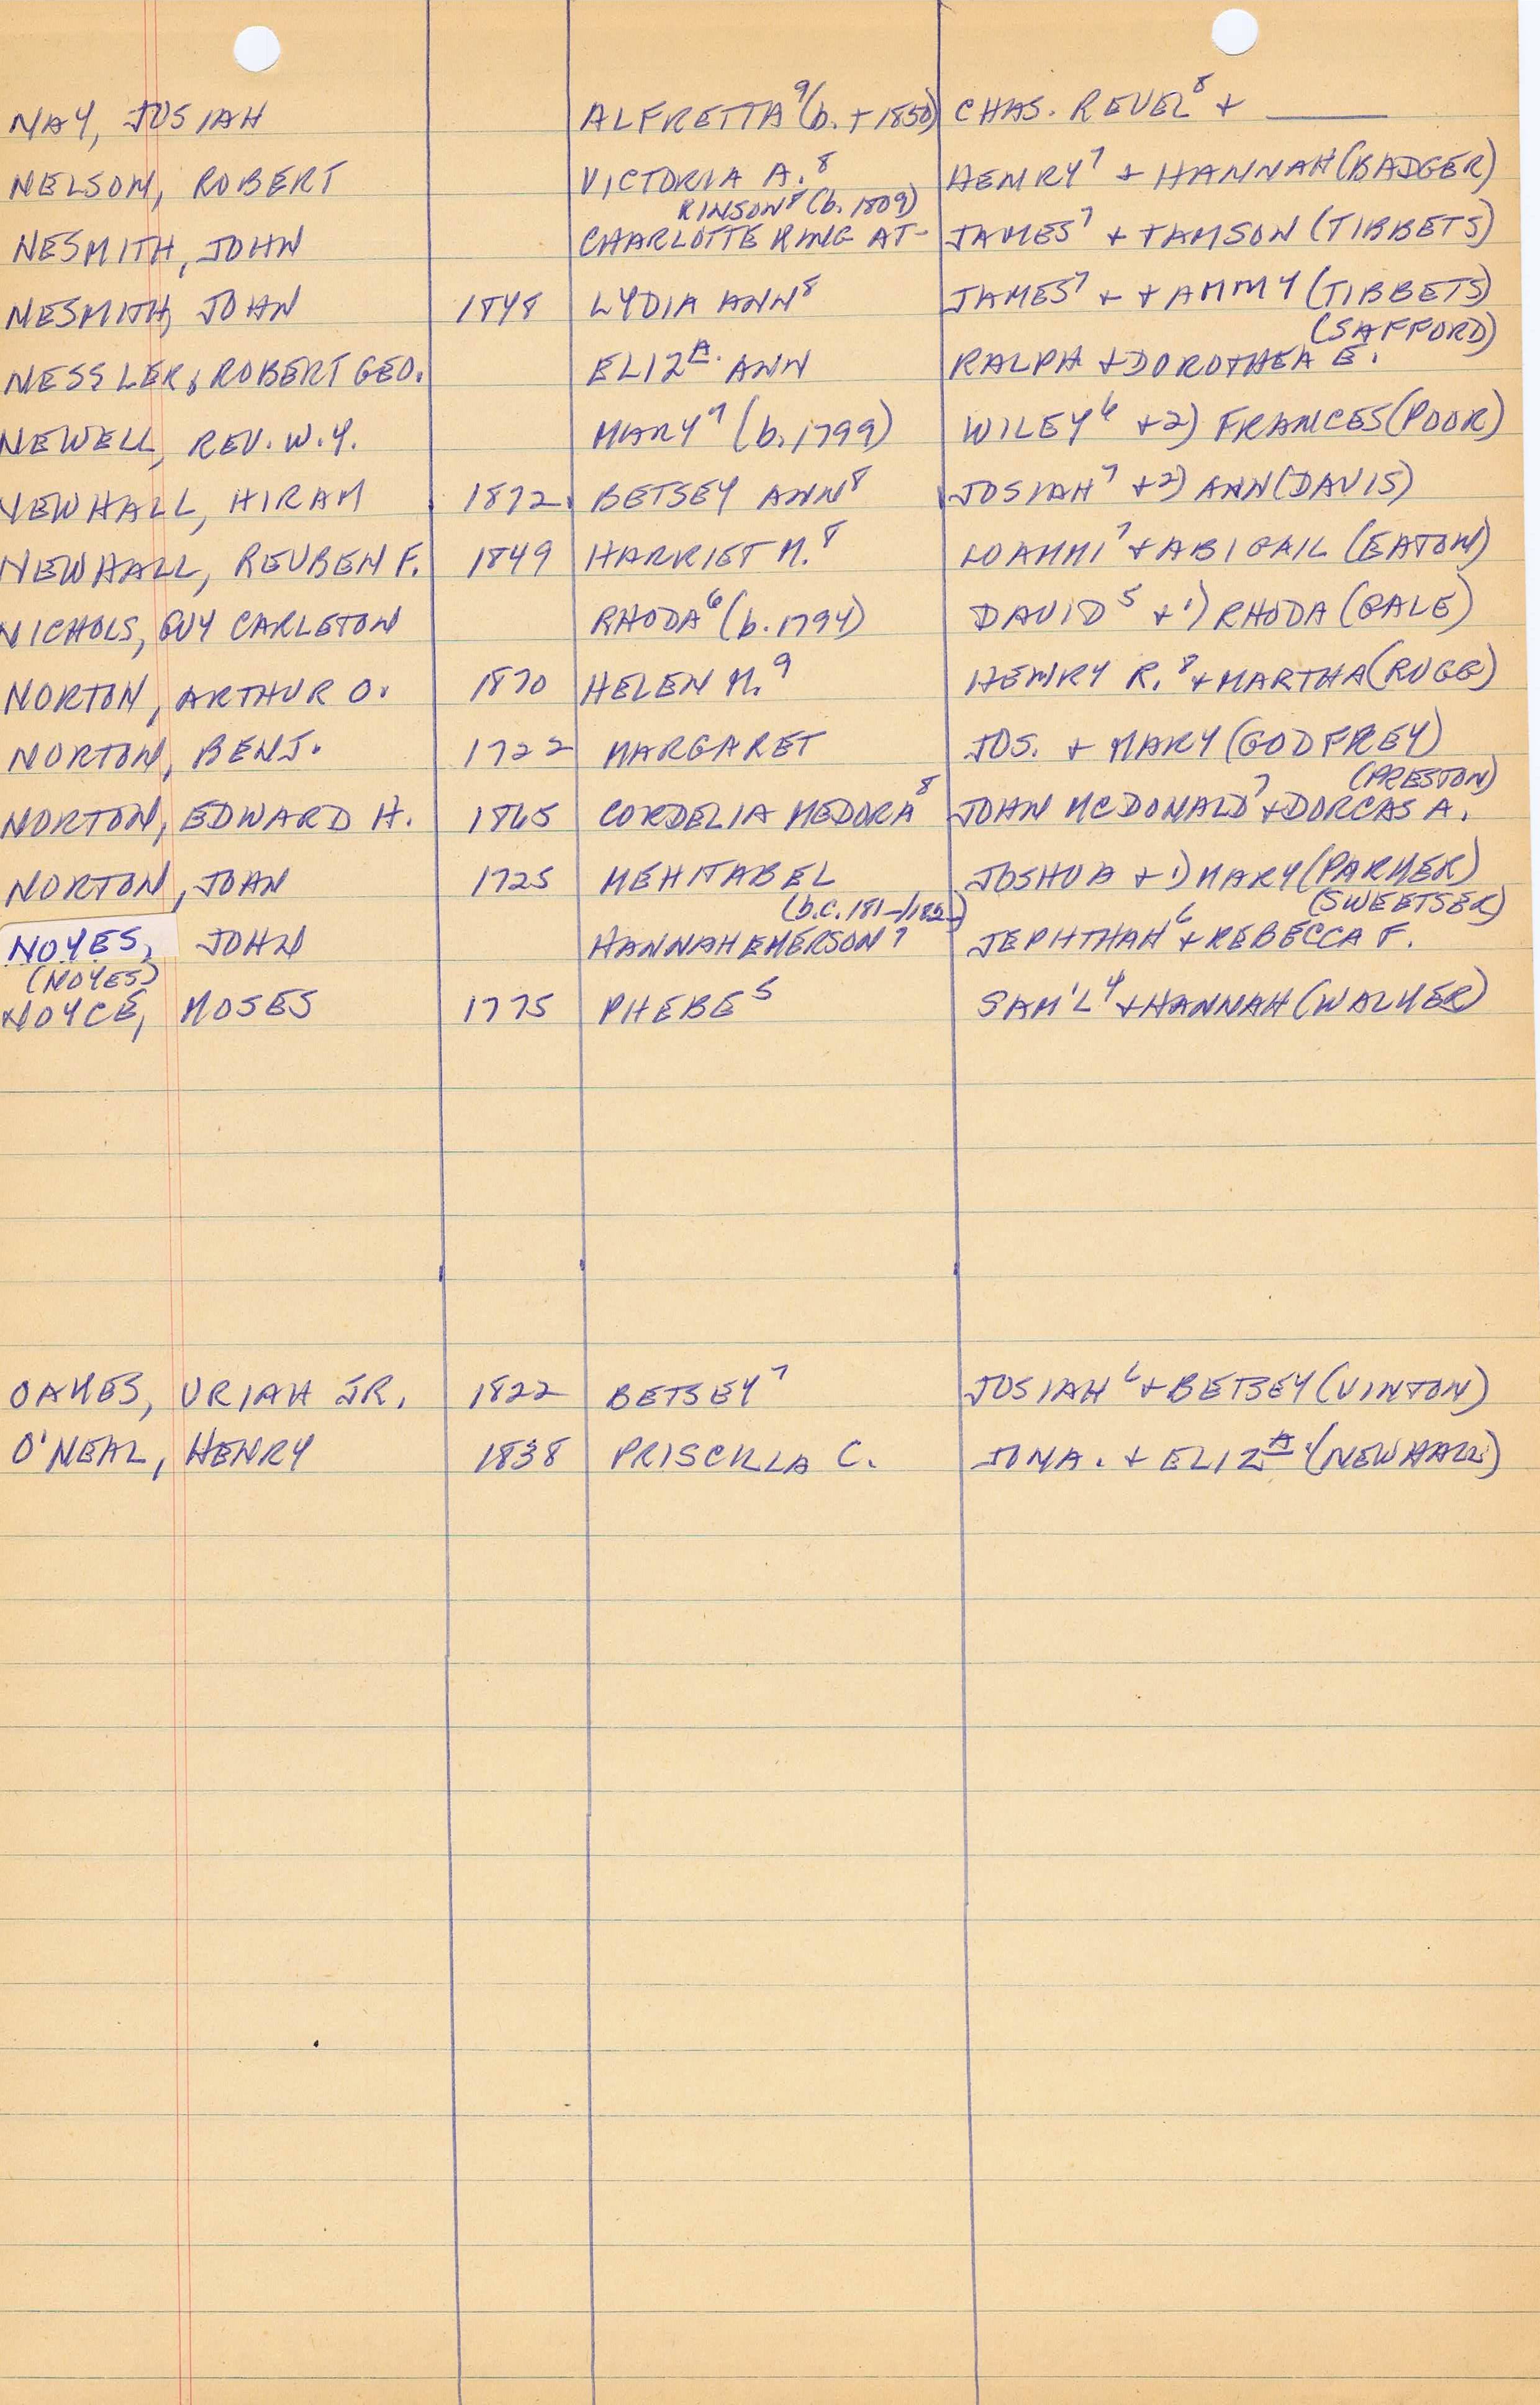 NAY, JOSIAH ALFRETTA⁹ (b. + 1850) CHAS. REUEL⁸ + ______
NELSON, ROBERT VICTORIA A.⁸ HENRY⁷ + HANNAH (BADGER)
KINSON⁸ (b. 1809)
NESMITH, JOHN CHARLOTTE KING AT- JAMES⁷ + TAMSON (TIBBETS)
NESMITH, JOHN 1848 LYDIA ANN⁸ JAMES⁷ + TAMMY (TIBBETS)
(SAFFORD)
NESSLER, ROBERT GEO. ELIZᴬ. ANN RALPH + DOROTHEA E.
NEWELL, REV. W.Y. MARY⁷ (b. 1799) WILEY⁶ + 2) FRANCES (POOR)
NEWHALL, HIRAM 1872 BETSEY ANN⁸ JOSIAH⁷ + 2) ANN (DAVIS)
NEWHALL, REUBEN F. 1849 HARRIET M.⁸ LOAMMI⁷ + ABIGAIL (EATON)
NICHOLS, GUY CARLETON RHODA⁶ (b. 1794) DAVID⁵ + 1) RHODA (GALE)
NORTON, ARTHUR O. 1870 HELEN M.⁹ HENRY R.⁸ + MARTHA (RUGG)
NORTON, BENJ. 1722 MARGARET JOS. + MARY (GODFREY)
(PRESTON)
NORTON, EDWARD H. 1865 CORDELIA MEDORA⁸ JOHN MCDONALD⁷ + DORCAS A.
NORTON, JOHN 1725 MEHITABEL JOSHUA + 1) MARY (PARKER)
(b.c. 181-/182-) (SWEETSER)
NOYES, JOHN HANNAH EMERSON⁷ JEPHTHAH⁶ + REBECCA F.
(NOYES)
NOYCE, MOSES 1775 PHEBE⁵ SAM'L⁴ + HANNAH (WALKER)
OAKES, URIAH JR. 1822 BETSEY⁷ JOSIAH⁶ + BETSEY (VINTON)
O'NEAL, HENRY 1838 PRISCILLA C. JONA. + ELIZᴬ. (NEWHALL)